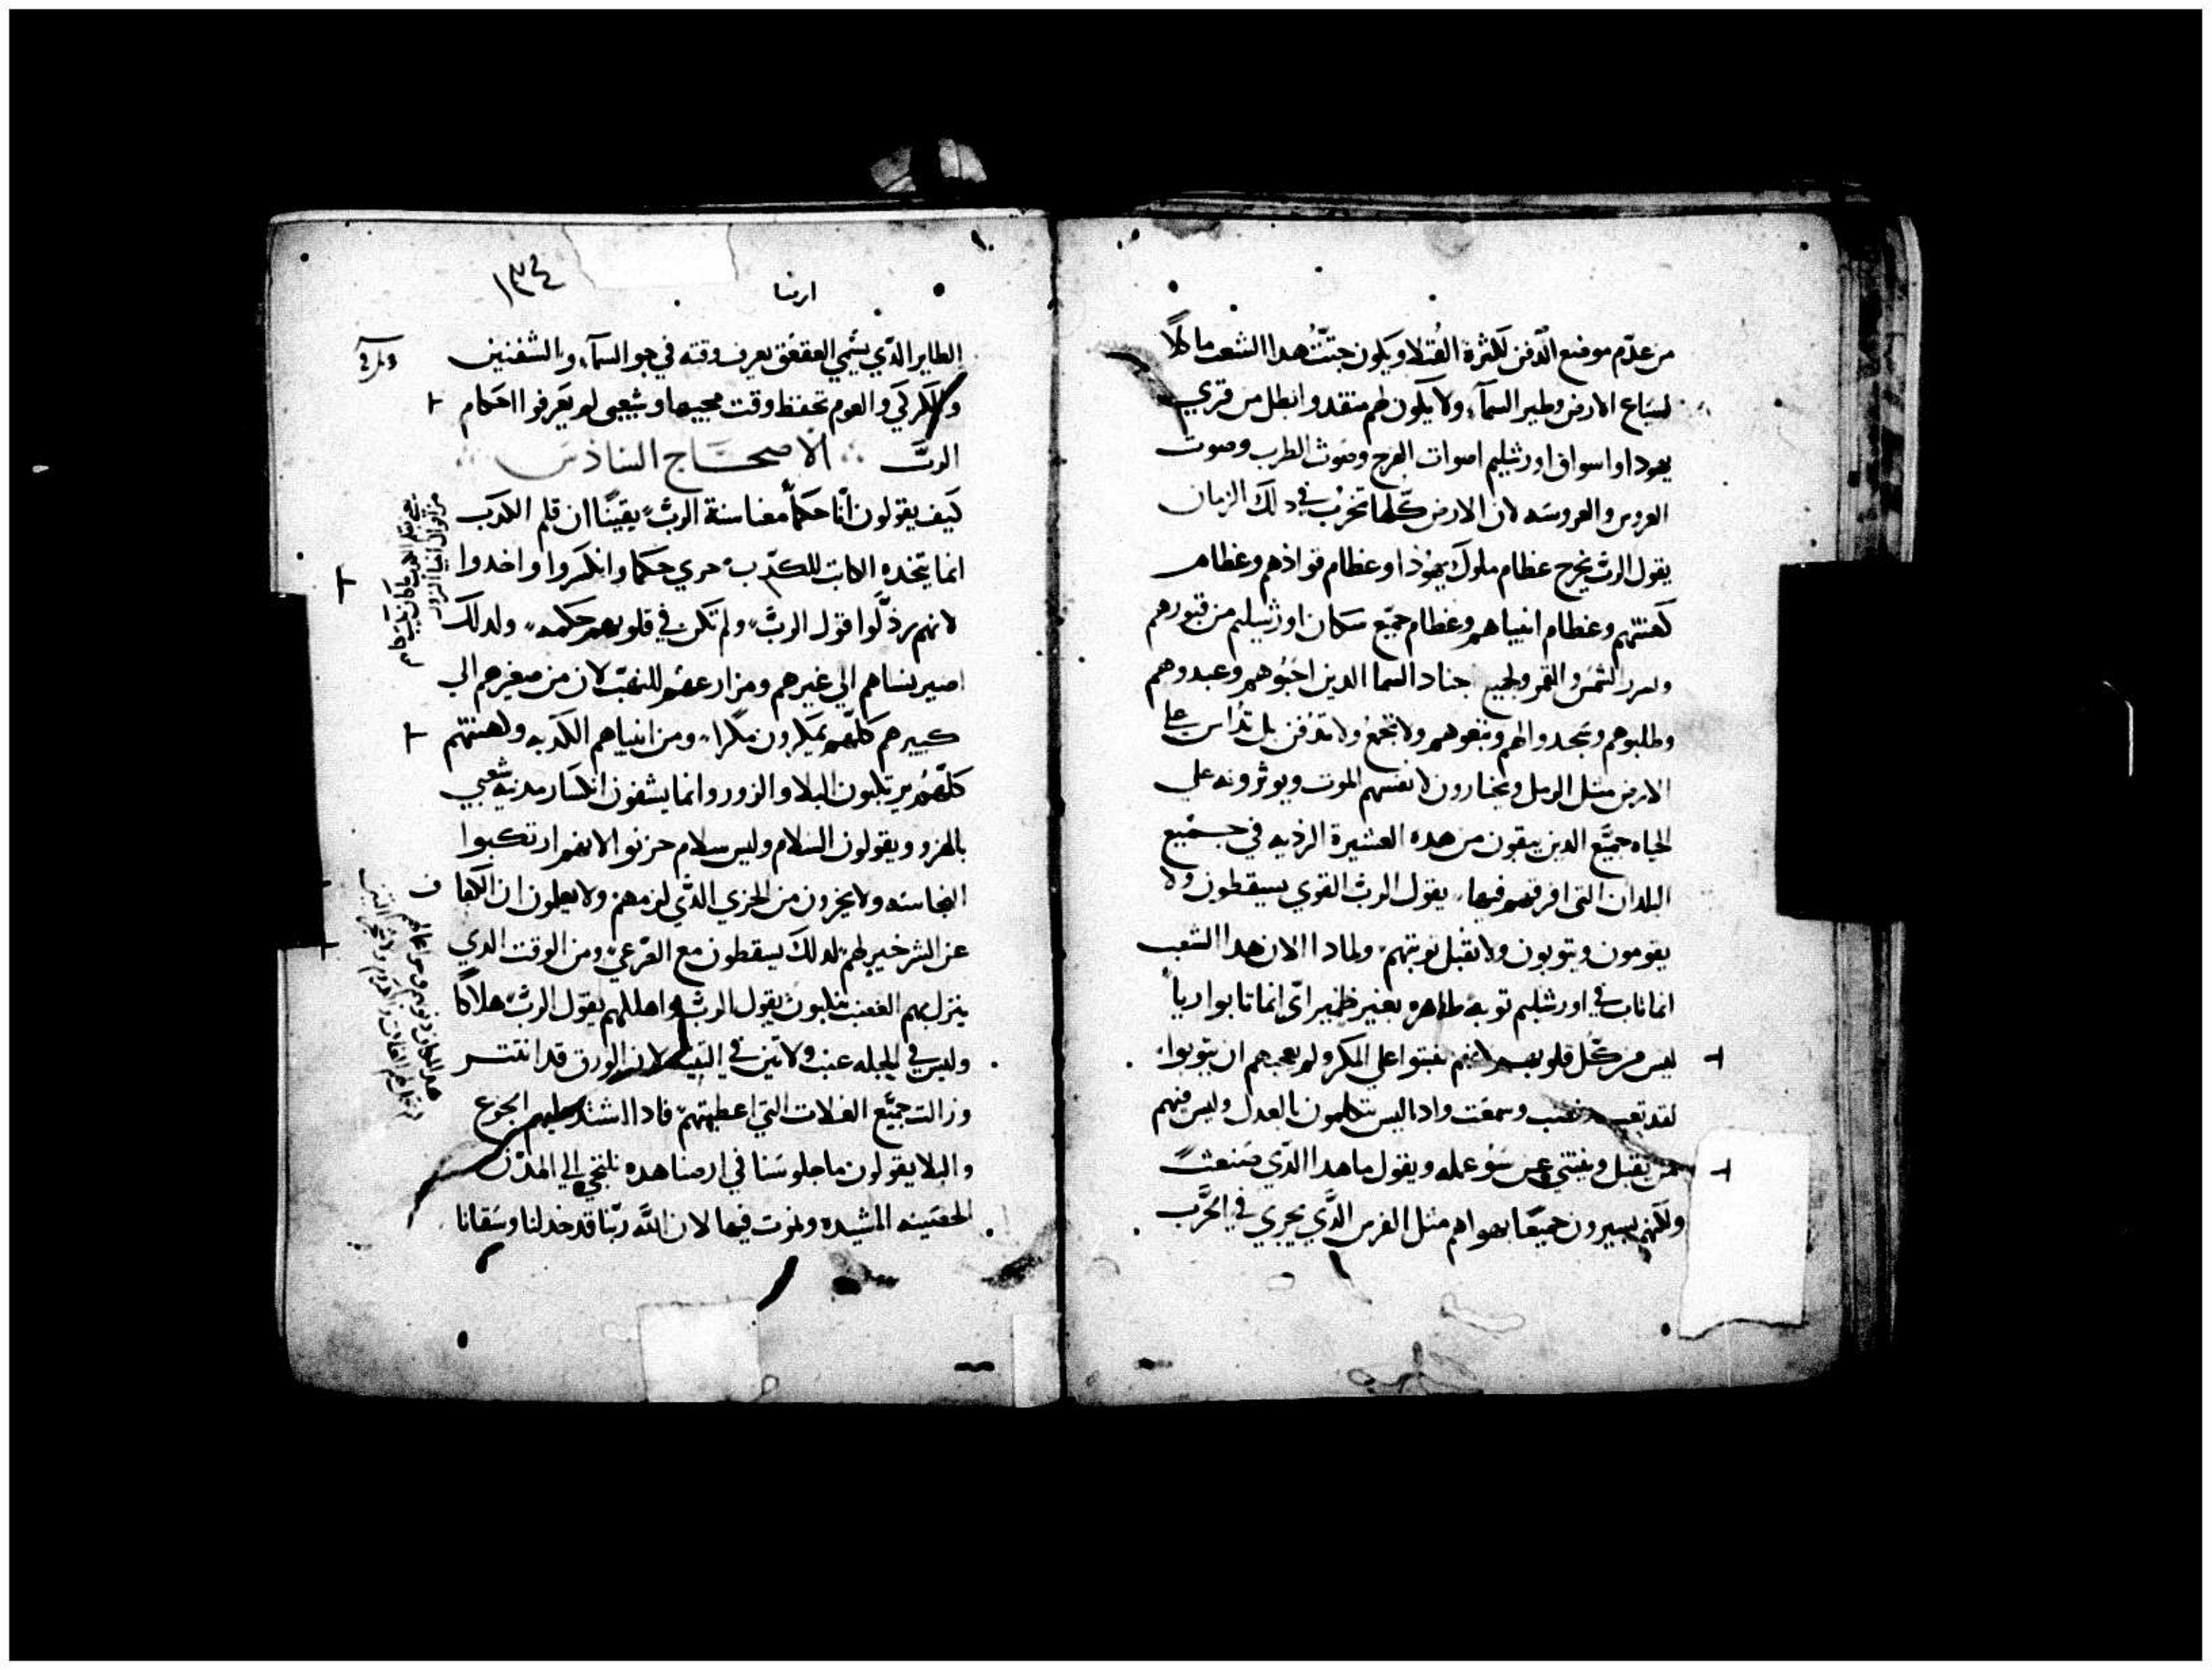 من عدّم موضع الدّفن لكثرة القُتلا ويكون جتّتُ هدا الشعب ماكلاً
لسباع الارض وطير السمآء ولا يكون لهم منقد وابطل من قري
يهودا واسواق اورشليم اصوات الفرح وصوت الطرب وصوت
العروس والعروسه لان الارض كلّها تخربُ في دلك الزمان
يقول الربّ يخرج عظام ملوك يهوُدا وعظام قوادهم وعظام
كهنتهم وعظام انبياهم وعظام جمّيع سكان اورشليم من قبورهم
الشمس والقمر ولجميع اجناد السما الدين احبّوُهم وعبدوهم
وطلبوهم وسجدوا لهم وتبعوهم ولا تجُمع ولا تدُفن بل تُداس علي
الارض متل الزبل ويختارون لانفسهم الموت ويوثرونه علي
الحياه جميّع الدين يبقون من هده العشيرة الرديه في جمّيع
البلدان التي افرقهم فيها يقول الربّ القوي يسقطون ولا
يقومون ويتوبون ولا تقبل توبتهم ولمادا الان هدا الشعب
انما تاب في اورشليم توبه ظاهره بغير ضمير اي انما تابوا رياً
ليس من كّل قلوبهم لانهم تبتوا علي المكر ولم يعجبهم ان يتوبوا
لقد وسمعت وادا ليس يتكلمون بالعدل وليس فيهم
من يقبل وينتني عن سّوُ عمله ويقول ما هدا الدّي صنعتُ
ولكنهم يسيرون جميعًا بهواهم متل الفرس الدّي يجري في الحرّب
ارميا
١٣٤
الطاير الدّي يسُمي العقعق يعرف وقته في جو السمآء والشفنين
والكركي والعوم تحفظ وقت مجيها وشعبي لم يَعرفوا احكام
الربّ الاصحاح السادس
كيف يقولون انّا حكمآ معنا سنة الربّ يقينًا ان قلم الكدب
انما يتخده الكاتب للكدّب خزي حكما وانكسروا واخدوا
لانهم رذلّوا قول الربّ ولم تكن في قلوبهم حكمه ولدلك
اصير نساهم الي غيرهم ومزارعهم للنهّب لان من صغيرهم الي
كبيرهم كلّهم يمكرون مكرًا ومن انبياهم الكدبه ولهنتهم
كلّهم يرتكبون البلا والزور وانما يشفون انكسار مدينة شعبي
بالهزو ويقولون السلام وليس سلام حزنوا لانهم ارتكبوا
النجاسه ولا يخزون من الخزي الدّي لزمهم ولا يعلمون ان الكفا ف
عن الشر خير لهم لدلك يسقطون مع الصّرعي ومن الوقت الدي
ينزل بهم الغضب يقول الربّ واهلكهم يقول الربّ هلاكًا
وليس في الجبله عنب ولا تين في التينه لان الورق قد انتتر
وزالت جميّع الغلات التي اعطيتهم فادا اشتد عليهم الجوع
والبلا يقولون ما جلوسنا في ارضنا هده نلتجي الي المدن
الحصينه المشيده ونموت فيها لان اللّه ربّنا قد خدلنا وسقانا